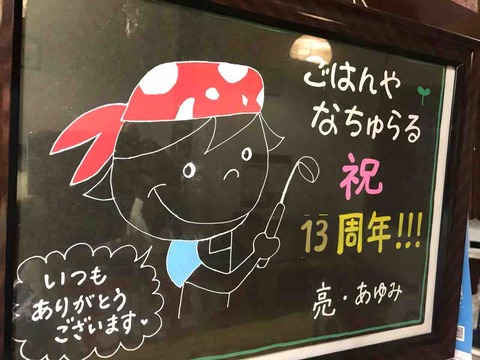 ごはんや
なちゅらる
祝
13周年!!!
亮・あゆみ
いつも
ありがとう
ございます